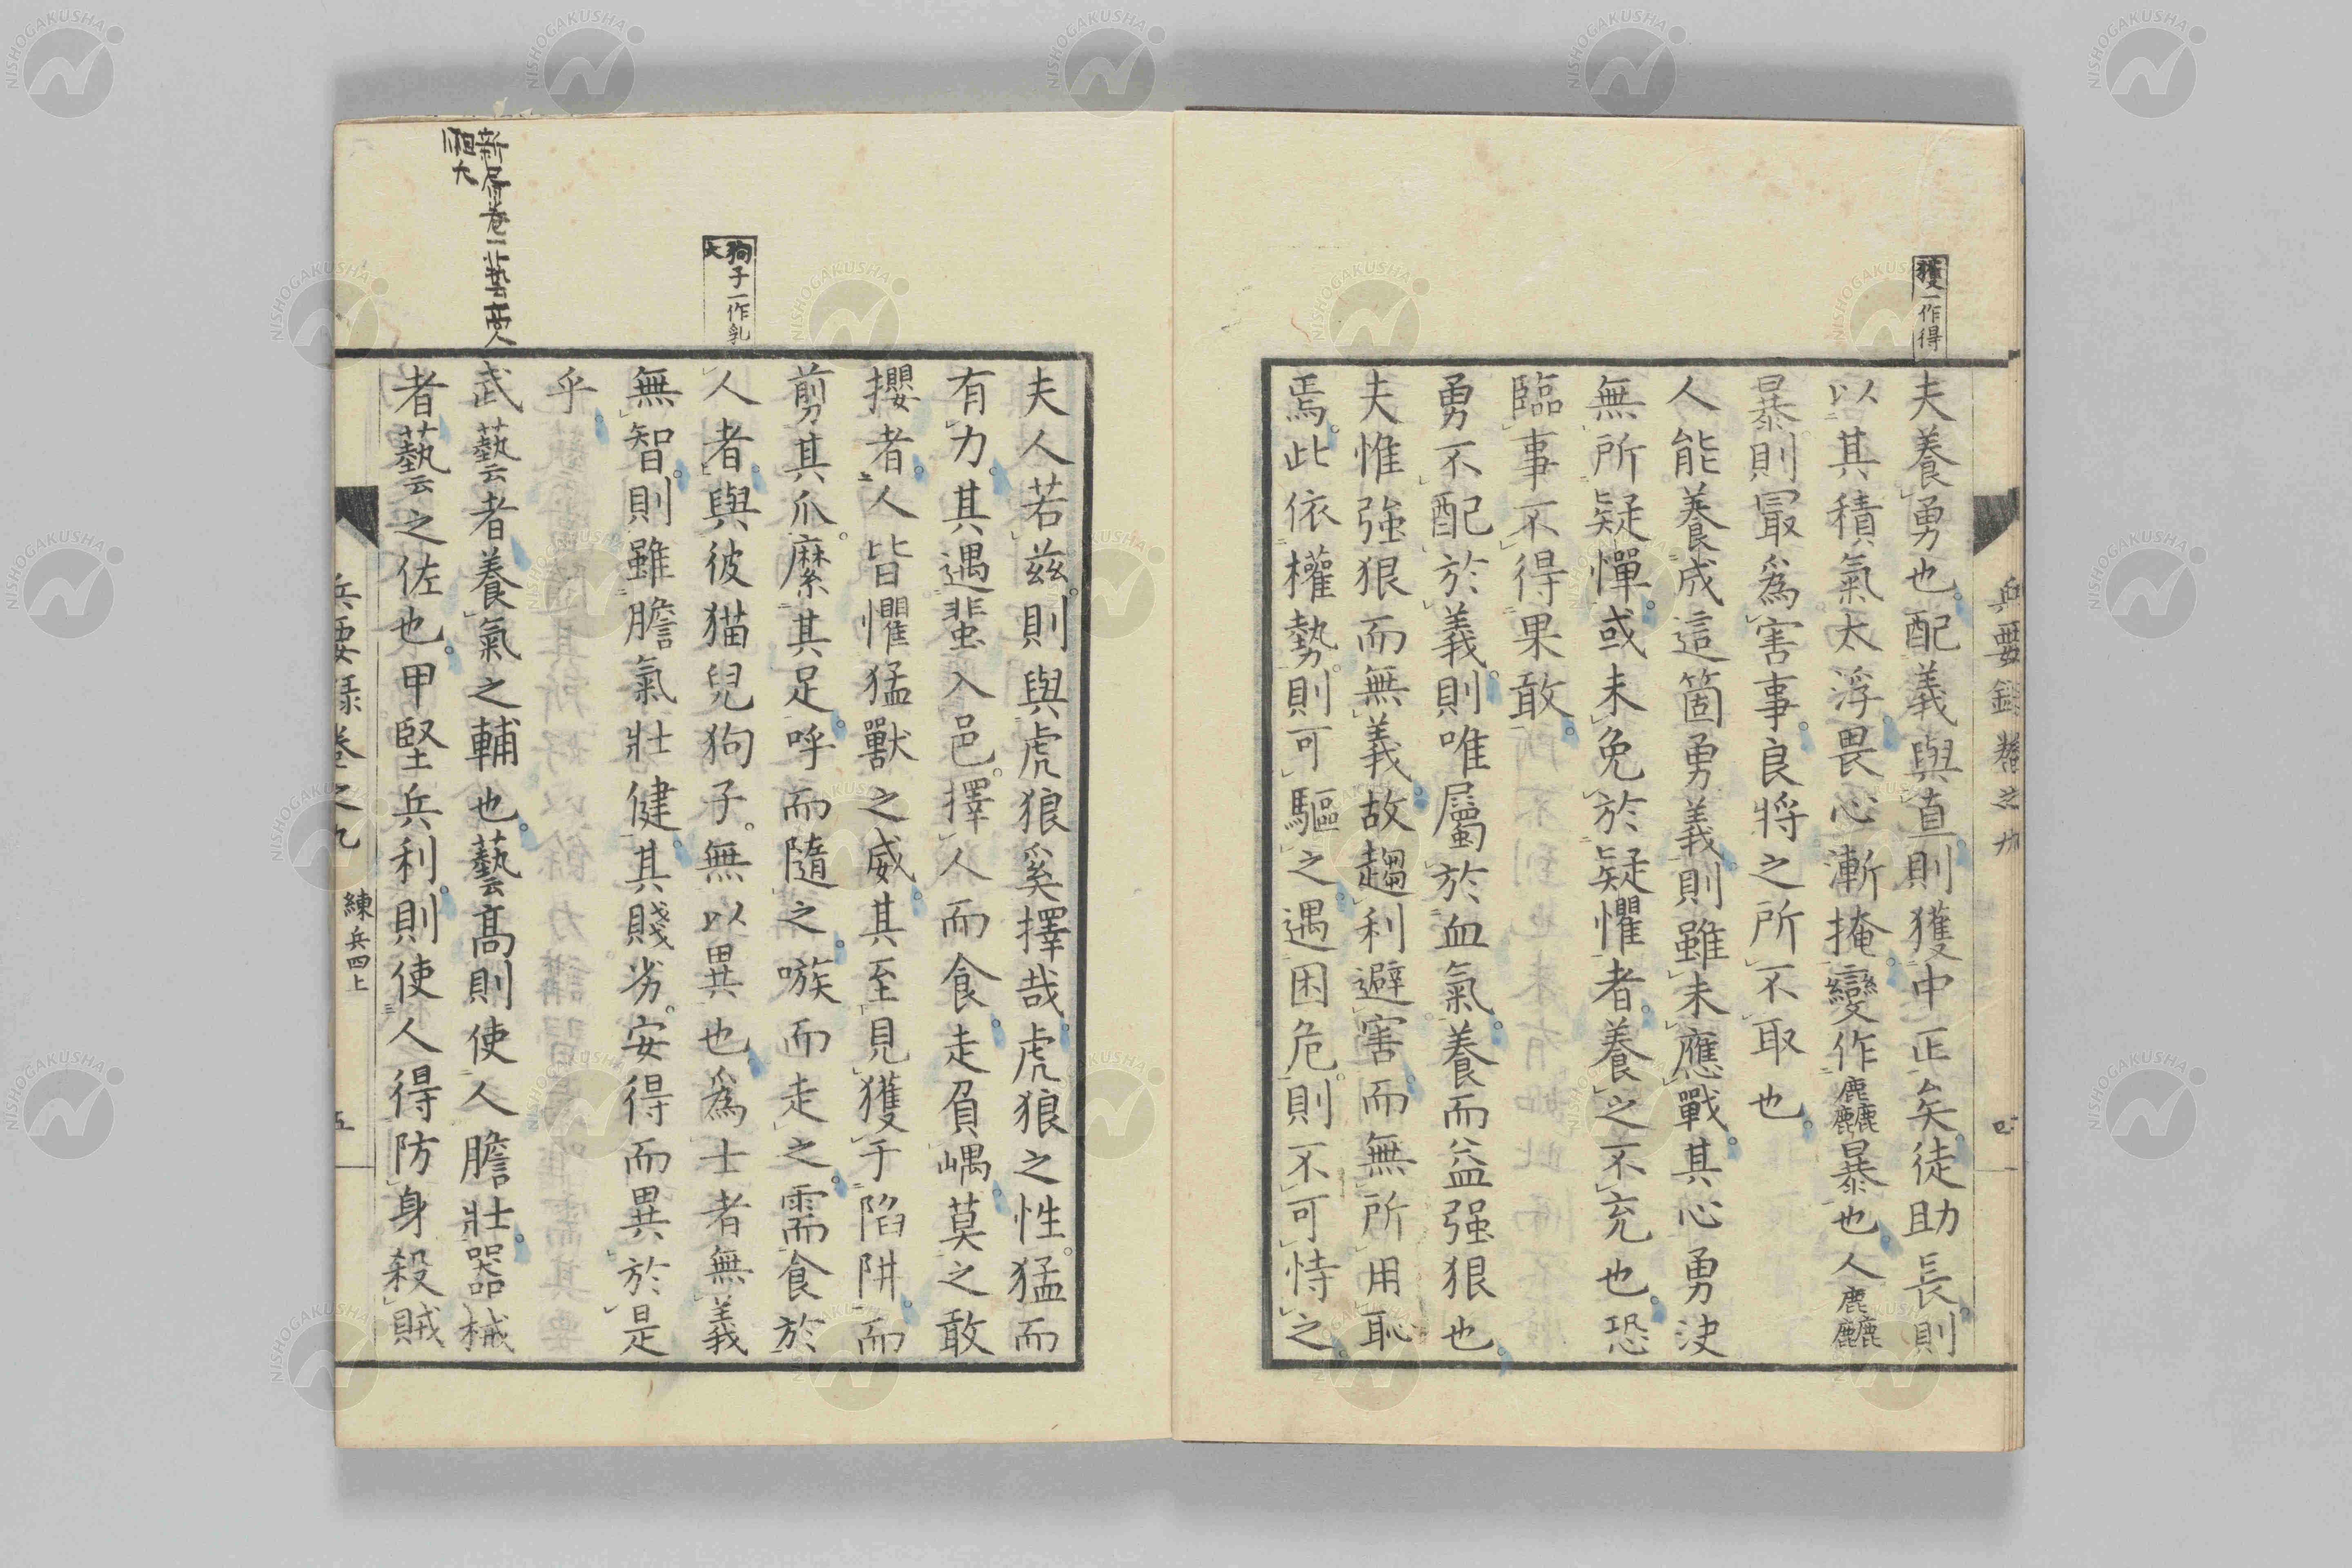 獲一作得
兵要錄卷之九
四
夫養勇也配義與直則獲中正矣徒助長則
以其積氣太浮畏心漸掩變作麁麤暴也人麁麤
暴則最爲害事良將之所不取也
人能養成這箇勇義則雖未應戰其心勇決
無所疑憚或未免於疑懼者養之不充也恐
臨事不得果敢
勇不配於義則唯屬於血氣養而益强狠也
夫惟強狠而無義故趨利避害而無所用恥
焉此依權勢則可驅之遇困危則不可恃之
夫人若茲則與虎狼奚擇哉虎狼之性猛而
有力其遇蜚入邑擇人而食走負嵎莫之敢
攖者人皆懼猛獸之威其至見獲于陷阱而
剪其爪縻其足呼而隨之嗾而走之需食於
狗子一作乳
犬
人者與彼猫兒狗子無以異也爲士者無義
無智則雖膽氣壯健其賤劣安得而異於是
乎
武藝者養氣之輔也藝高則使人膽壯器械
者藝之佐也甲堅兵利則使人得防身殺賊
兵要錄卷之九
練兵四上
五
NISHOGAKUSHA